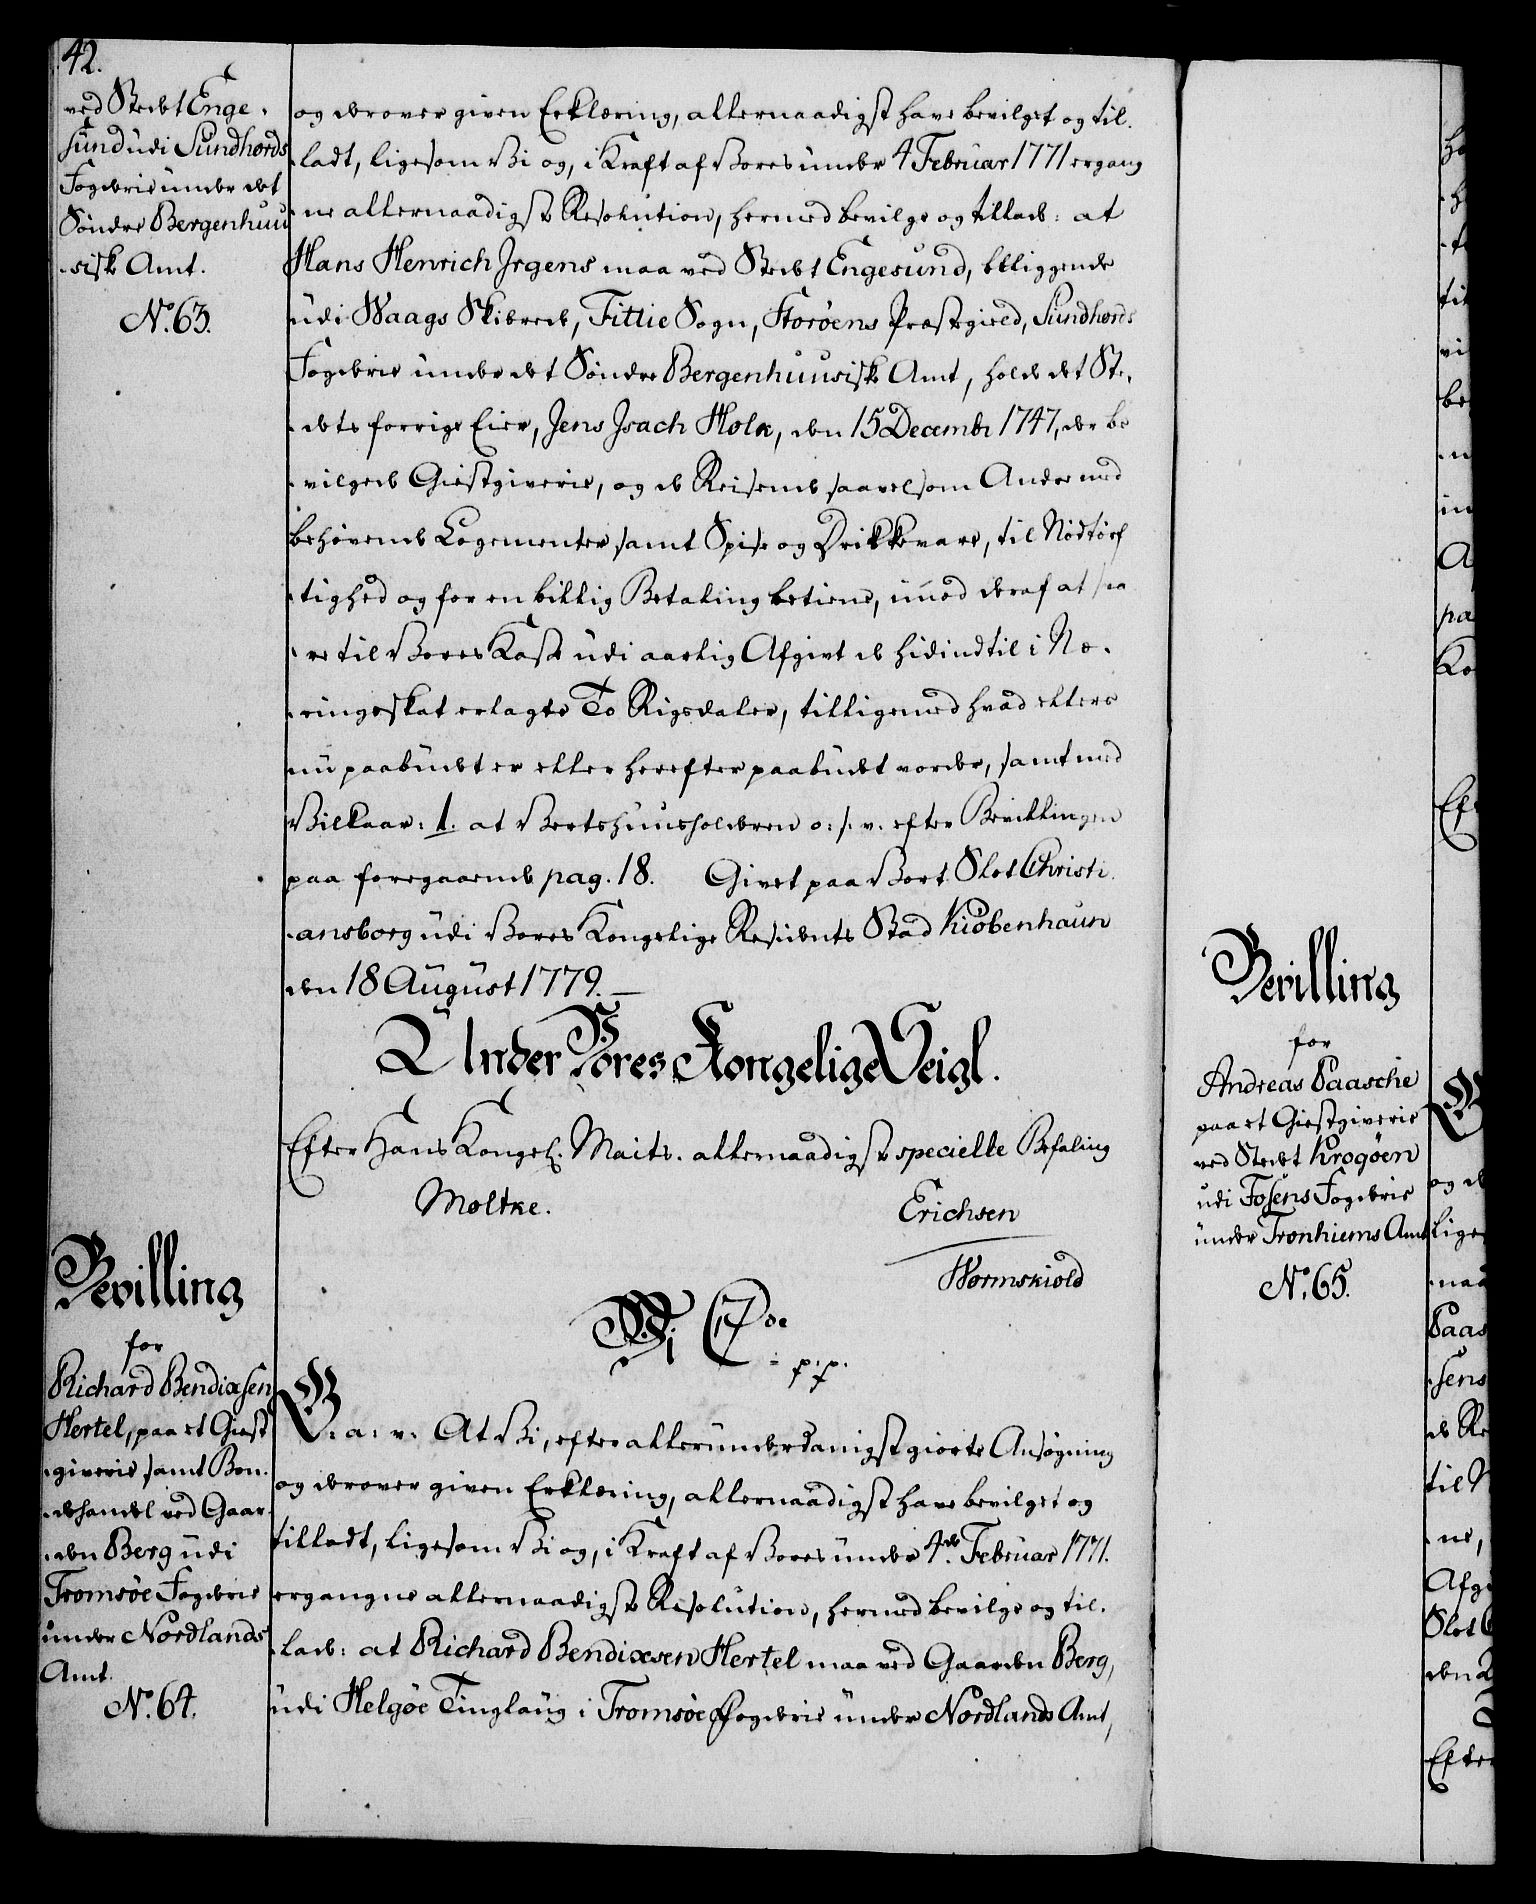 42.
ved Stedet Enge-
sund udi Sundhords
Fogderie under det
Søndre Bergenhuu
-siske Amt.
No. 63.
og derover given Erklæring, allernaadigst have bevilget og til-
ladt, ligesom Vi og, i Kraft af Vores under 4 Februar 1771 ergang
-ne allernaadigste Resolution, hermed bevilge og tillade: at
Hans Henrich Irgens maa ved Stedet Engesund, beliggende
udi Waags Skibrede, Fittie Sogn, Storøens Præstegield, Sundhords
Fogderie under det Søndre Bergenhuusiske Amt, holde det Ste-
-dets forrige Eier, Jens Isach Holck, den 15 Decembr 1747, der be
-vilgede Giestgiverie, og de Reisende saavelsom Andre med
behøvende Logementer samt Spise og Drikkevare, til Nødtørf
-tighed og for en billig Betaling betiene, imod deraf at sva
-re til Vores Kasse udi aarlig Afgivt de hidindtil i Næ-
-ringsskat erlagte To Rigsdaler, tilligemed hvad ellers
nu paabudet er eller herefter paabudet vorder, samt med
Vilkaar: 1. at Vertshuusholderen o: s: v. efter Bevillingen
paa foregaaende pag. 18. Givet paa Vort Slot Christi-
-ansborg udi Vores Kongelige Residents Stad Kiøbenhaun
den 18 August 1779. —
Under Vores Kongelige Seigl.
Efter Hans Kongel. Maits. allernaadigste specielle Befaling
Moltke.
Erichsen
Wormskiold
Bevilling
for
Richard Bendixsen
Hertel, paa et Giest
-giverie samt Bon-
-dehandel ved Gaar-
-den Berg udi
Tromsøe Fogderie
under Nordlands
Amt.
No. 64.
Wi C 7de
p. p.
G. a: v. At Vi, efter allerunderdanigst giorte Ansøgning
og derover given Erklæring, allernaadigst have bevilget og
tilladt, ligesom Vi og, i Kraft af Vores under 4de Februar 1771.
ergangne allernaadigste Resolution, hermed bevilge og til-
lade: at Richard Bendixsen Hertel maa ved Gaarden Berg,
udi Helgøe Tinglaug i Tromsøe Fogderie under Nordlands Amt,
Bevilling
for
Andreas Paasche
paa et Giestgiverie
ved Stedet Krogøen
udi Fosens Fogderie
under Tronhiems Amt
No. 65.